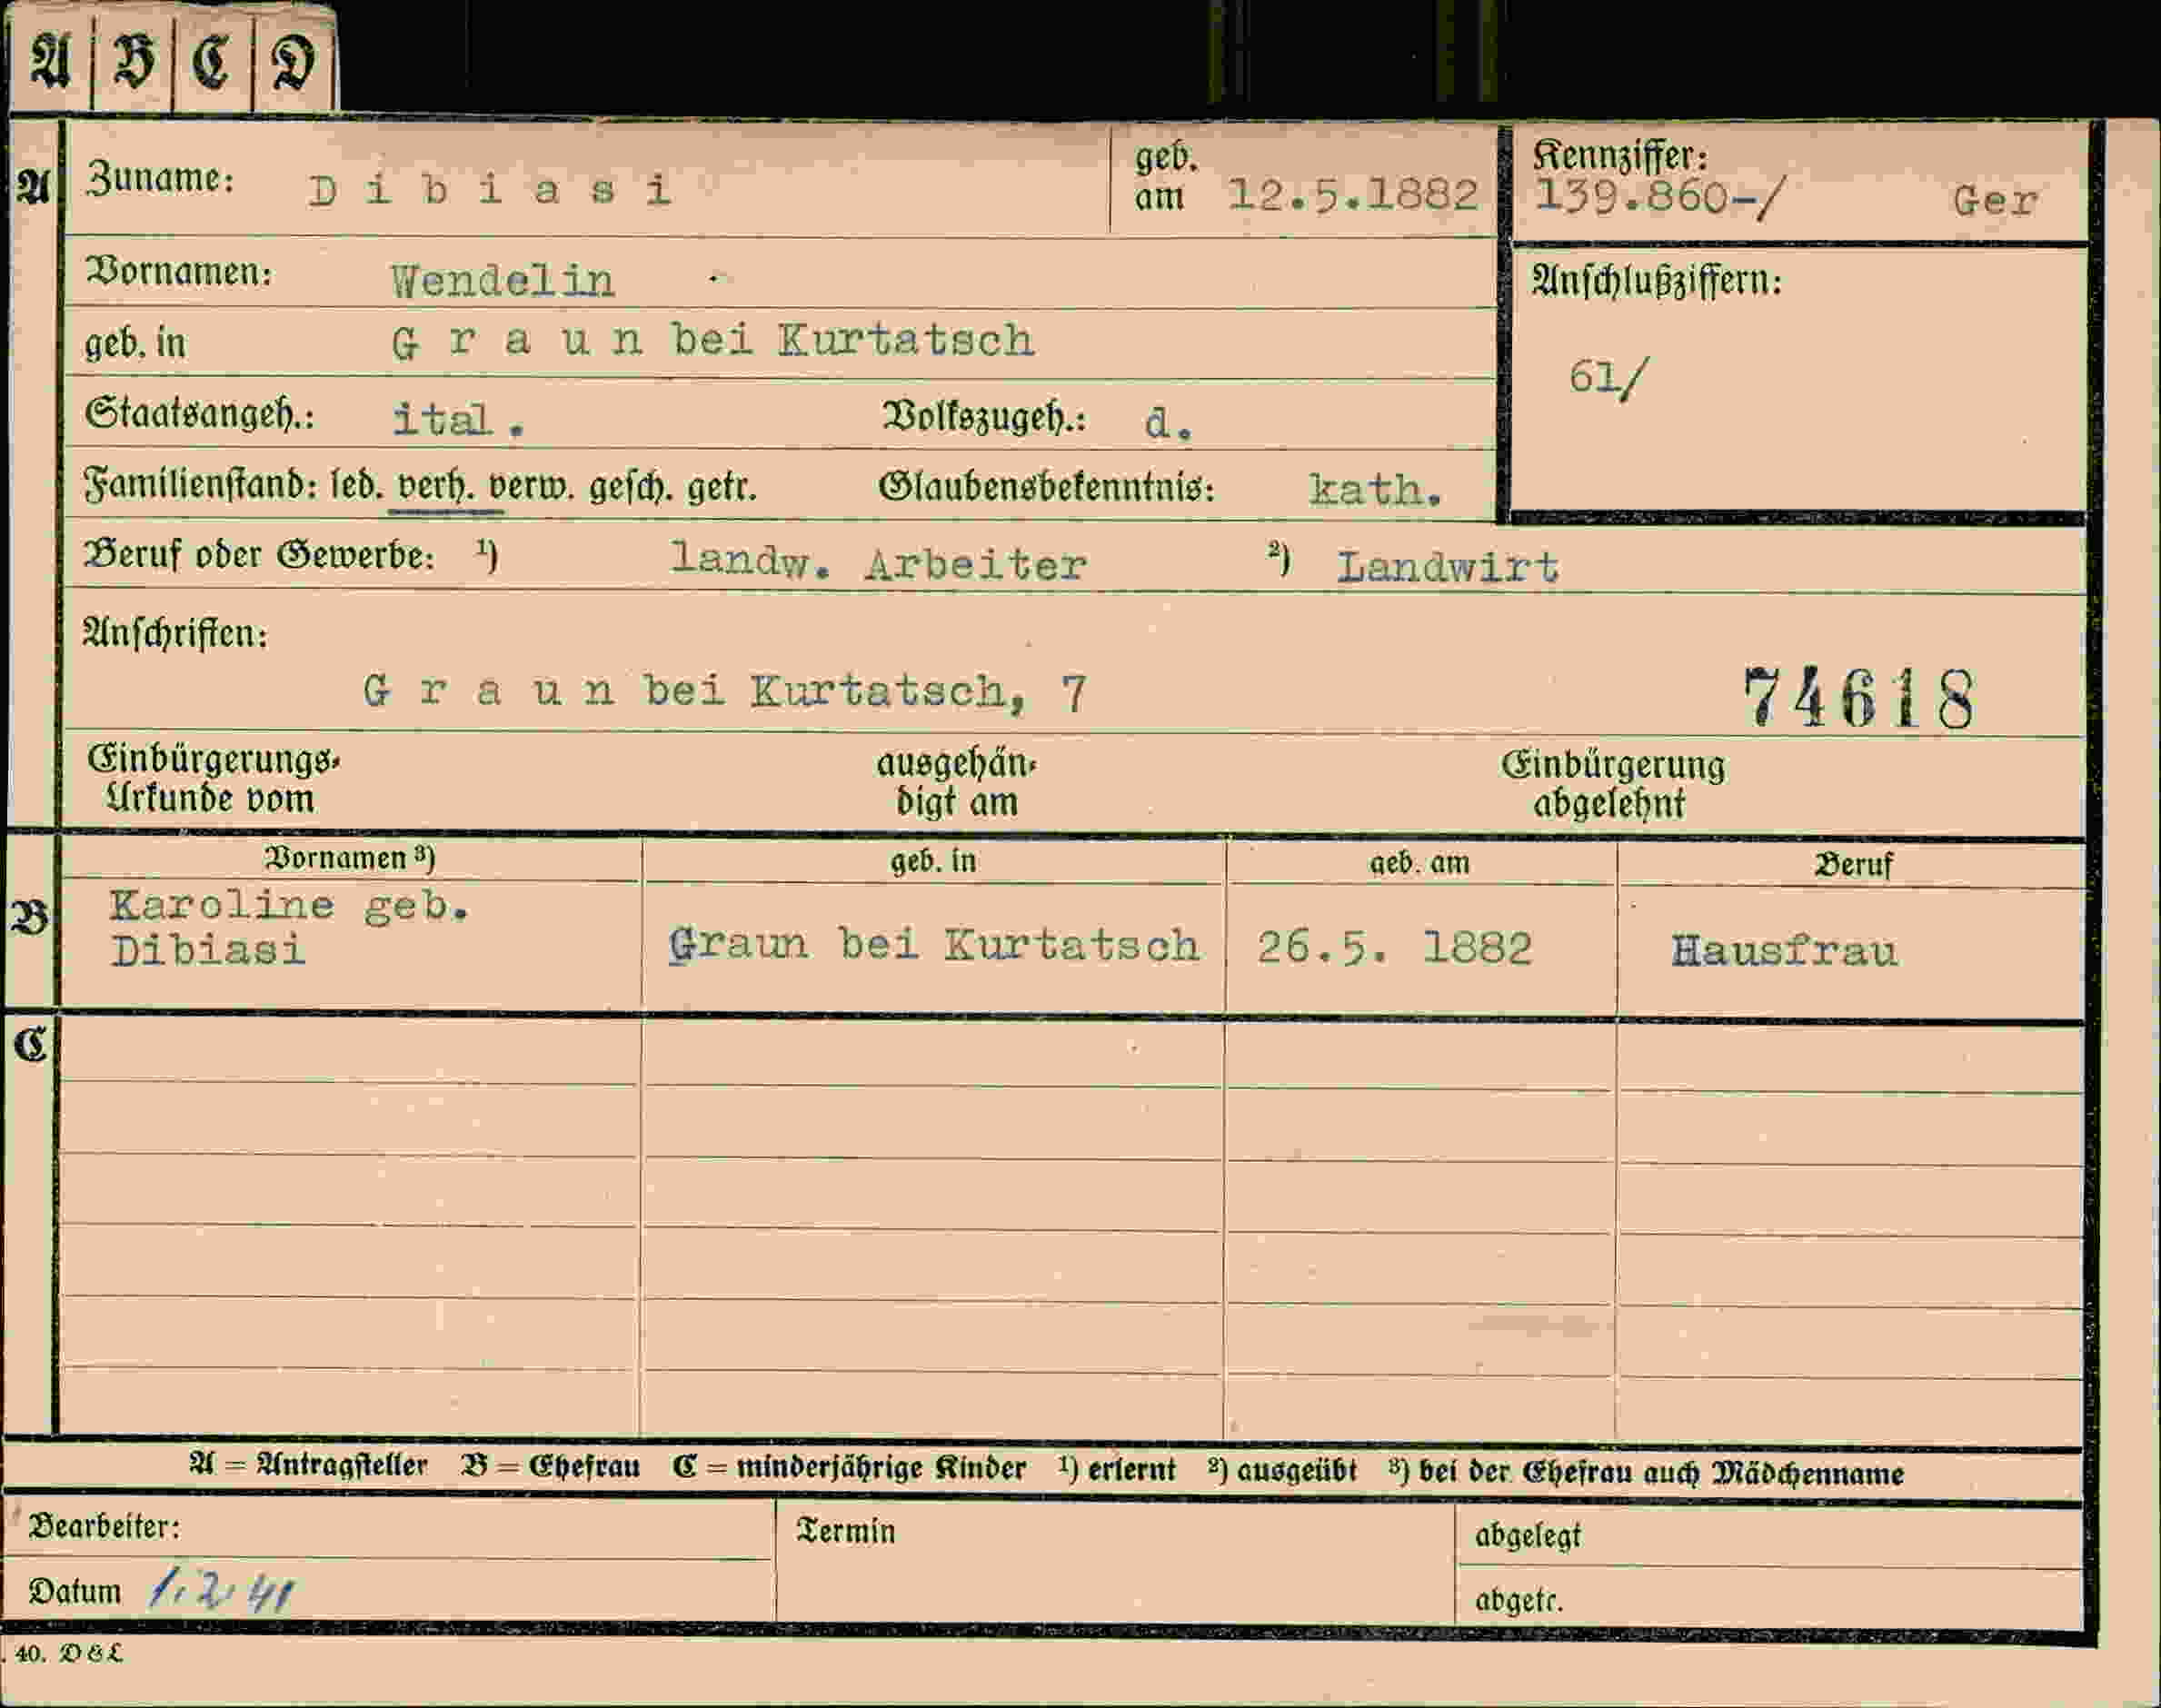 A B C D
A Zuname: D i b i a s i geb. am 12.5.1882 Kennziffer: 139.860-/ Ger
Vornamen: Wendelin Anschlußziffern:
geb. in G r a u n bei Kurtatsch
61/
Staatsangeh.: ital. Volkszugeh.: d.
Familienstand: led. verh. verw. gesch. getr. Glaubensbekenntnis: kath.
Beruf oder Gewerbe: 1) landw. Arbeiter 2) Landwirt
Anschriften:
G r a u n bei Kurtatsch, 7 74618
Einbürgerungs- ausgehän- Einbürgerung
Urkunde vom digt am abgelehnt
Vornamen 3) geb. in geb. am Beruf
B Karoline geb.
Dibiasi Graun bei Kurtatsch 26.5. 1882 Hausfrau
C
A = Antragsteller B = Ehefrau C = minderjährige Kinder 1) erlernt 2) ausgeübt 3) bei der Ehefrau auch Mädchenname
Bearbeiter: Termin abgelegt
Datum 1.2.41 abgetr.
. 40. D & L